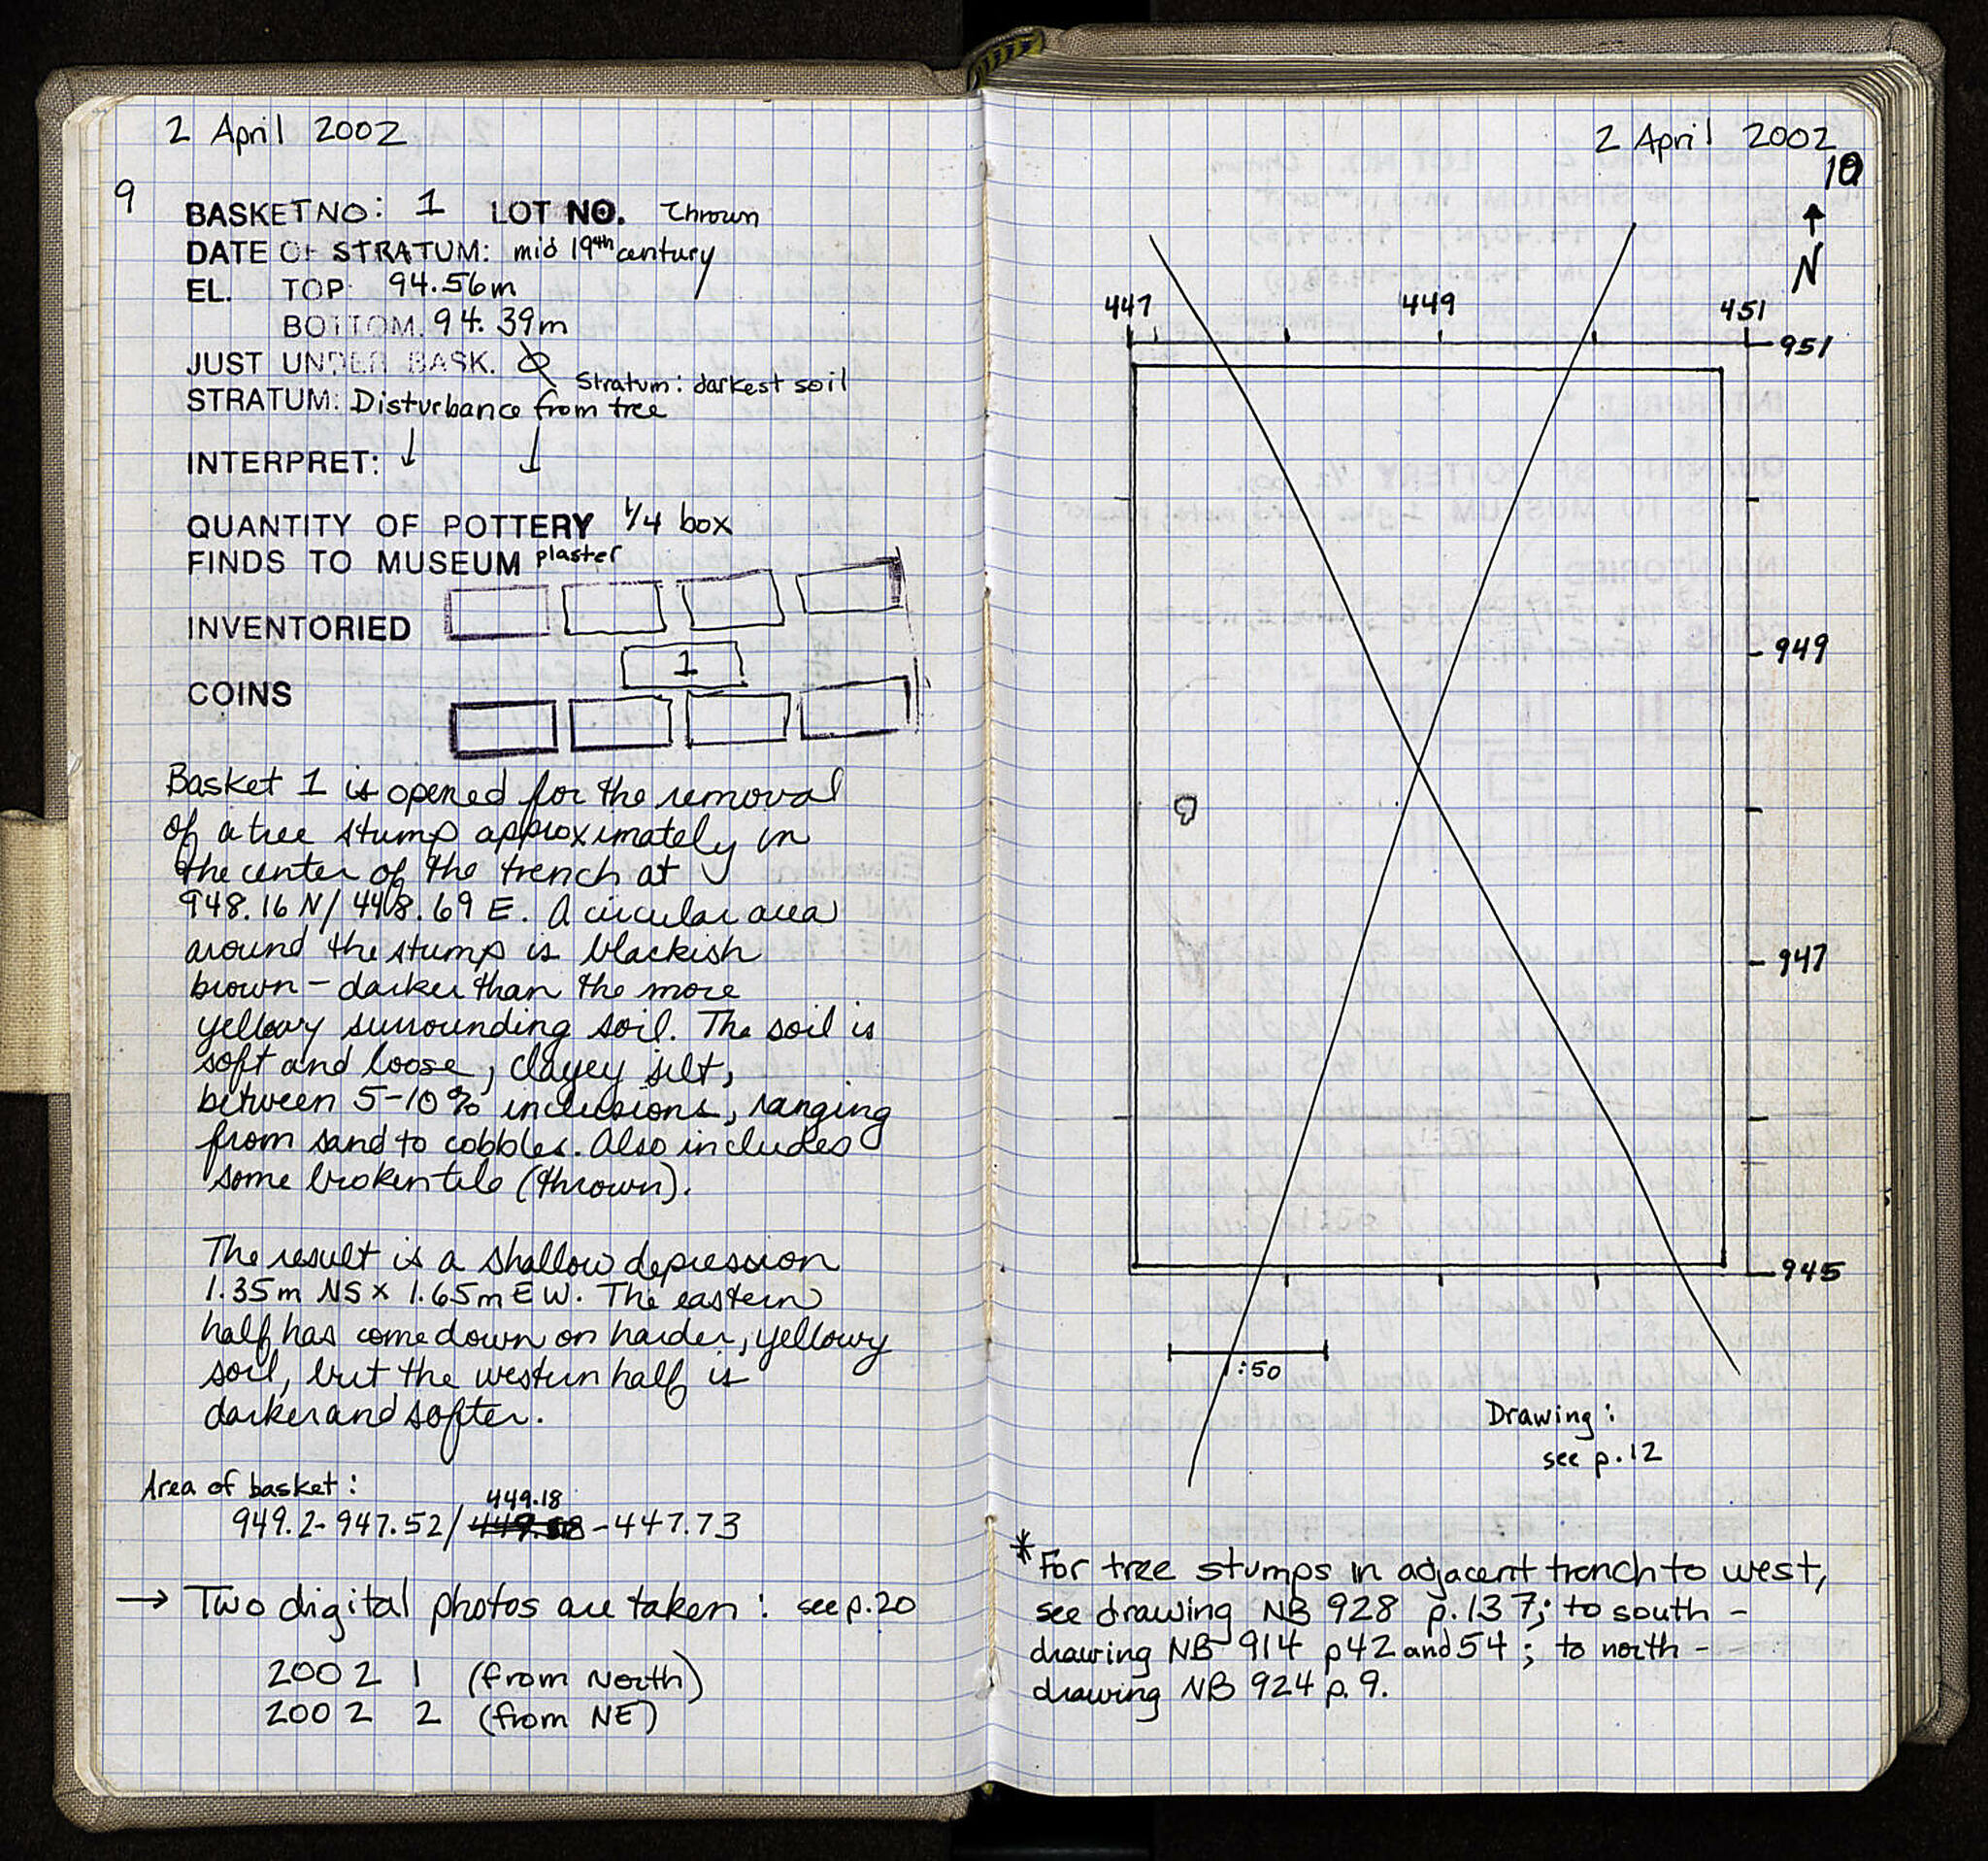 2 April 2002
9
BASKET NO: 1 LOT NO. Thrown
DATE OF STRATUM: mid 19th century
EL. TOP: 94.56m
BOTTOM. 94.39m
JUST UNDER BASK. Ø
Stratum: darkest soil
STRATUM: Disturbance from tree
INTERPRET: ↓ ↓
QUANTITY OF POTTERY 1/4 box
FINDS TO MUSEUM plaster
INVENTORIED
1
COINS
Basket 1 is opened for the removal
of a tree stump approximately in
the center of the trench at
948.16 N/ 448.69 E. A circular area
around the stump is blackish
brown - darker than the more
yellowy surrounding soil. The soil is
soft and loose, clayey silt,
between 5-10% inclusions, ranging
from sand to cobbles. Also includes
some broken tile (thrown).
The result is a shallow depression
1.35m NS x 1.65m EW. The eastern
half has come down on harder, yellowy
soil, but the western half is
darker and softer.
Area of basket:
449.18
949.2-947.52/ -447.73
→ Two digital photos are taken: see p.20
2002 1 (from North)
2002 2 (from NE)
2 April 2002
10
↑
N
447 449 451
951
949
947
945
1:50
Drawing:
see p.12
*For tree stumps in adjacent trench to west,
see drawing NB 928 p.137; to south -
drawing NB 914 p42 and 54; to north -
drawing NB 924 p.9.